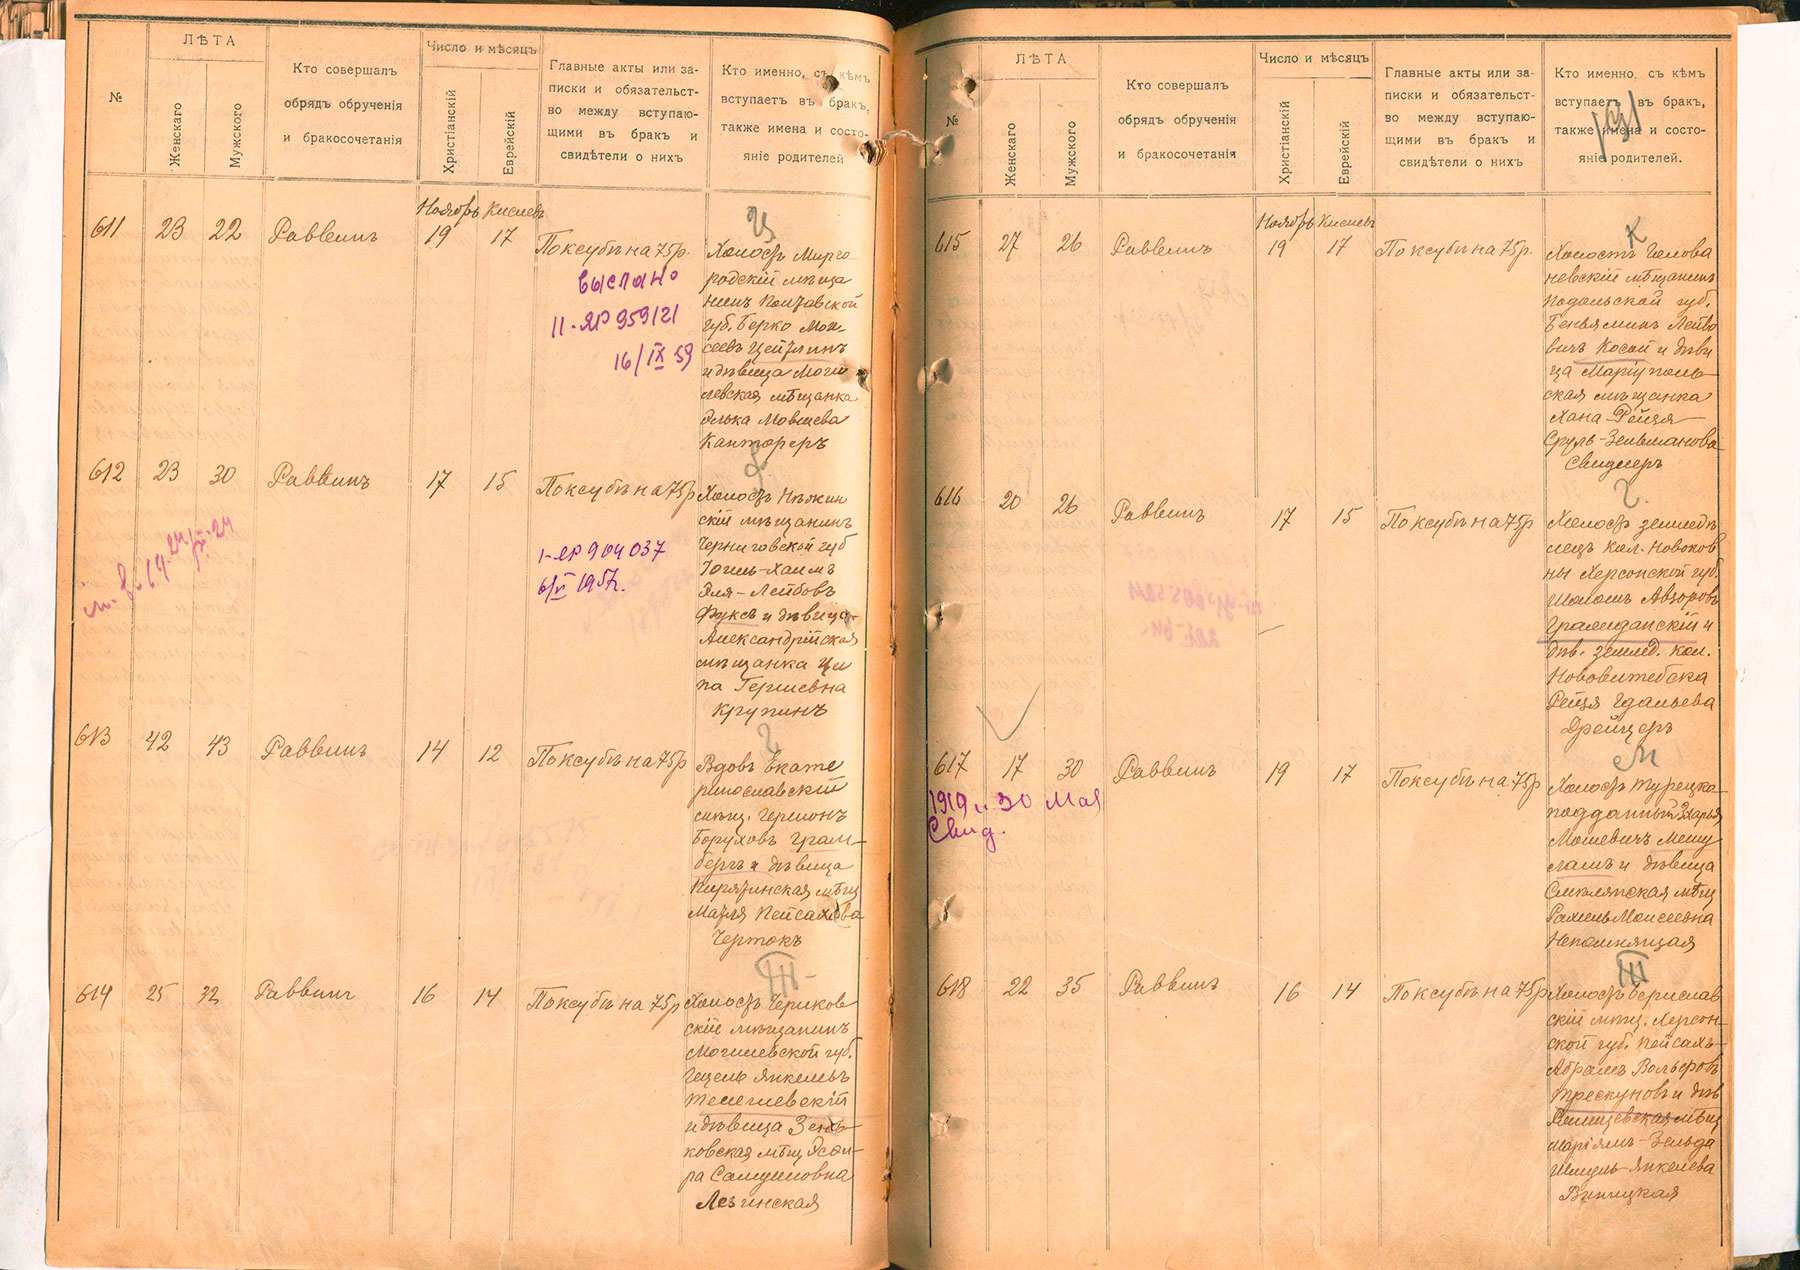 №
ЛѢТА
Женскаго
Мужского
Кто совершалъ
обрядъ обручения
и бракосочетанія
Число и мѣсяцъ
Христіанскій
Еврейскій
Главные акты или за-
писки и обязательст-
во между вступаю-
щими въ бракъ и
свидѣтели о нихъ
Кто именно, съ кѣмъ
вступаетъ въ бракъ,
также имена и состо-
яніе родителей
Ноябрь Кислевъ
611 23 22 Раввинъ 19 17 По ксубѣ на 75р.
Холостъ Мирго
родскій мѣща
нинъ Полтавской
губ. Берко Мои
сеевъ Цейтлинъ
и дѣвица Моги
левская мѣщанка
Элька Мовшева
Кантореръ
выслано
II-ЯР 959121
16/IX 59
612 23 30 Раввинъ 17 15 По ксубѣ на 75р
Холостъ Нѣжин
скій мѣщанинъ
Черниговской губ
Іоиль-Хаимъ
Эля-Лейбовъ
Фуксъ и дѣвица
Александрійская
мѣщанка Ци
па Гершевна
Крупинъ
I-ЯР 904037
6/V 1957г.
613 42 43 Раввинъ 14 12 По ксубѣ на 75р
Г
Вдовъ Екате
ринославскій
мѣщ. Гершонъ
Боруховъ Грам-
бергъ и дѣвица
Пирятинская мѣщ
Матля Пейсахова
Чертокъ
614 25 32 Раввинъ 16 14 По ксубѣ на 75р
Холостъ Чериков
скій мѣщанинъ
Могилевской губ.
Гецель Янкелевъ
Телешевскій
и дѣвица Зень
ковская мѣщ Эсѳи-
ра Самуиловна
Лезинская
№
ЛѢТА
Женскаго
Мужского
Кто совершалъ
обрядъ обручения
и бракосочетанія
Число и мѣсяцъ
Христіанскій
Еврейскій
Главные акты или за-
писки и обязательст-
во между вступаю-
щими въ бракъ и
свидѣтели о нихъ
Кто именно, съ кѣмъ
вступаетъ въ бракъ,
также имена и состо-
яніе родителей.
Ноябрь Кислевъ
615 27 26 Раввинъ 19 17 По ксубѣ на 75р.
К
Холостъ Голова
невскій мѣщанинъ
Подольской губ.
Беньяминъ Лейбо
вичъ Косой и дѣви
ца Маріуполь-
ская мѣщанка
Хана-Рейзя
Сруль-Зельманова
Свидлеръ
616 20 26 Раввинъ 17 15 По ксубѣ на 75р
Г.
Холостъ земледѣ
лецъ кол. Новоков
ны Херсонской губ.
Шоломъ Авзоровъ
Гражданскій и
дѣв. землед. кол.
Нововитебска
Рейзя Гдальева
Дрейцеръ
617 17 30 Раввинъ 19 17 По ксубѣ на 75р
1919 г. 30 Мая
Свид.
М
Холостъ турецко
подданный Зарья
Мошевичъ Мешу
ламъ и дѣвица
Смѣлянская мѣщ
Рахиль Моисеевна
Непомнящая
618 22 35 Раввинъ 16 14 По ксубѣ на 75р
Холостъ Берислав
скій мѣщ. Херсон-
ской губ. Пейсахъ-
Абрамъ Вольфовъ
Трескуновъ и дѣв
мѣщ
Маріямъ-Зельда
Шмуль-Янкелева
Виницкая